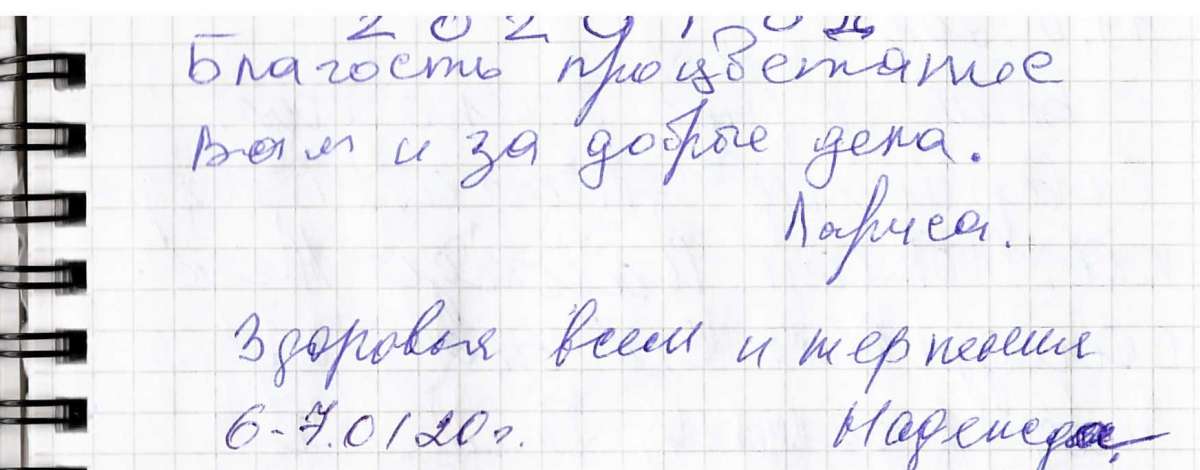 Благость процветание
Вам и за добрые дела.
Лариса.
Здоровья всем и терпения
6-7.01 20г.
Надежда